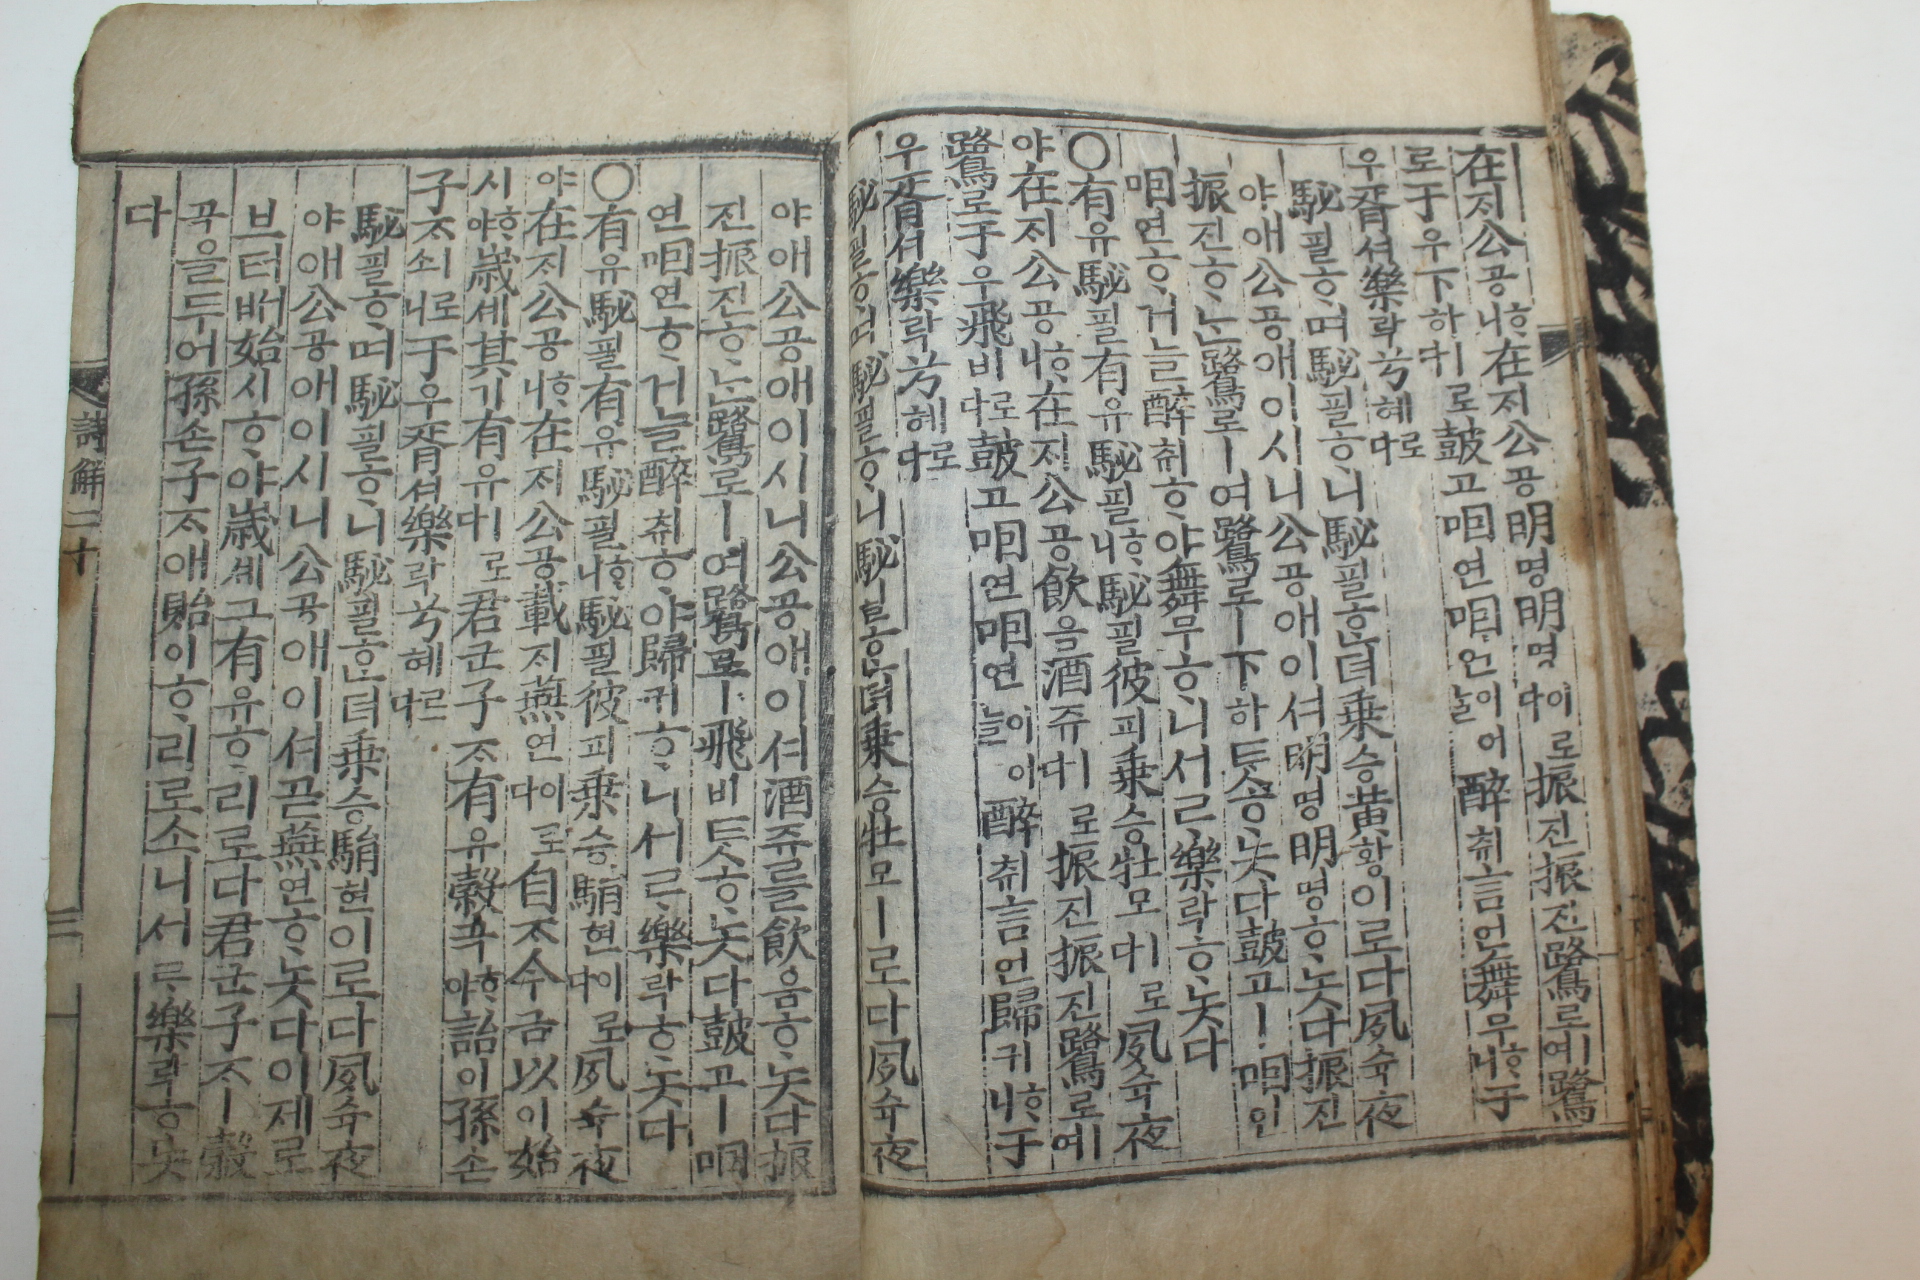 在ᄌᆡ公공ᄒᆞ니在ᄌᆡ公공明명明명이로다振진振진鷺로예鷺
로于우下하ㅣ로다鼓고咽연咽연이어늘醉취言언舞무ᄒᆞ니于
우胥셔樂락兮혜로다
駜필ᄒᆞ며駜필ᄒᆞ니駜필ᄒᆞᆫ뎌乘승黃황이로다夙슉夜
야애公공애이시니公공애이셔明명明명ᄒᆞ놋다振진
振진ᄒᆞᄂᆞᆫ鷺로ㅣ여鷺로ㅣ下하ᄐᆞᆺᄒᆞ놋다鼓고ㅣ咽인
咽연ᄒᆞ거늘醉취ᄒᆞ야舞무ᄒᆞ니서ᄅᆞ樂락ᄒᆞ놋다
○有유駜필有유駜필ᄒᆞ니駜필彼피乘승牡모ㅣ로다夙슉夜
야在ᄌᆡ公공ᄒᆞ니在ᄌᆡ公공飮음酒쥬ㅣ로다振진振진鷺로예
鷺로于우飛비로다鼓고咽연咽연이어늘醉취言언歸귀ᄒᆞ니于
우胥셔樂락兮혜로다
駜필ᄒᆞ며駜필ᄒᆞ니駜필ᄒᆞᆫ뎌乘승牡모ㅣ로다夙슉夜
야애公공애이시니公공애이셔酒쥬를飮음ᄒᆞ놋다振
진振진ᄒᆞᄂᆞᆫ鷺로ㅣ여鷺로ㅣ飛비ᄃᆞᆺᄒᆞ놋다鼓고ㅣ咽
연咽연ᄒᆞ거늘醉취ᄒᆞ야歸귀ᄒᆞ니서ᄅᆞ樂락ᄒᆞ놋다
○有유駜필有유駜필ᄒᆞ니駜필彼피乘승駽현이로다夙슉夜
야在ᄌᆡ公공ᄒᆞ니在ᄌᆡ公공載ᄌᆡ燕연이로다自ᄌᆞ今금以이始
시ᄒᆞ야歲셰其기有유ㅣ로다君군子ᄌᆞ有유穀곡ᄒᆞ야詒이孫손
子ᄌᆞㅣ로소니于우胥셔樂락兮혜로다
駜필ᄒᆞ며駜필ᄒᆞ니駜필ᄒᆞᆫ뎌乘승駽현이로다夙슉夜
야애公공애이시니公공애이셔곧燕연ᄒᆞ놋다이제로
브터ᄡᅥ始시ᄒᆞ야歲셰그有유ᄒᆞ리로다君군子ᄌᆞㅣ穀
곡을두어孫손子ᄌᆞ애貽이ᄒᆞ리로소니서ᄅᆞ樂락ᄒᆞ놋
다
詩解二十